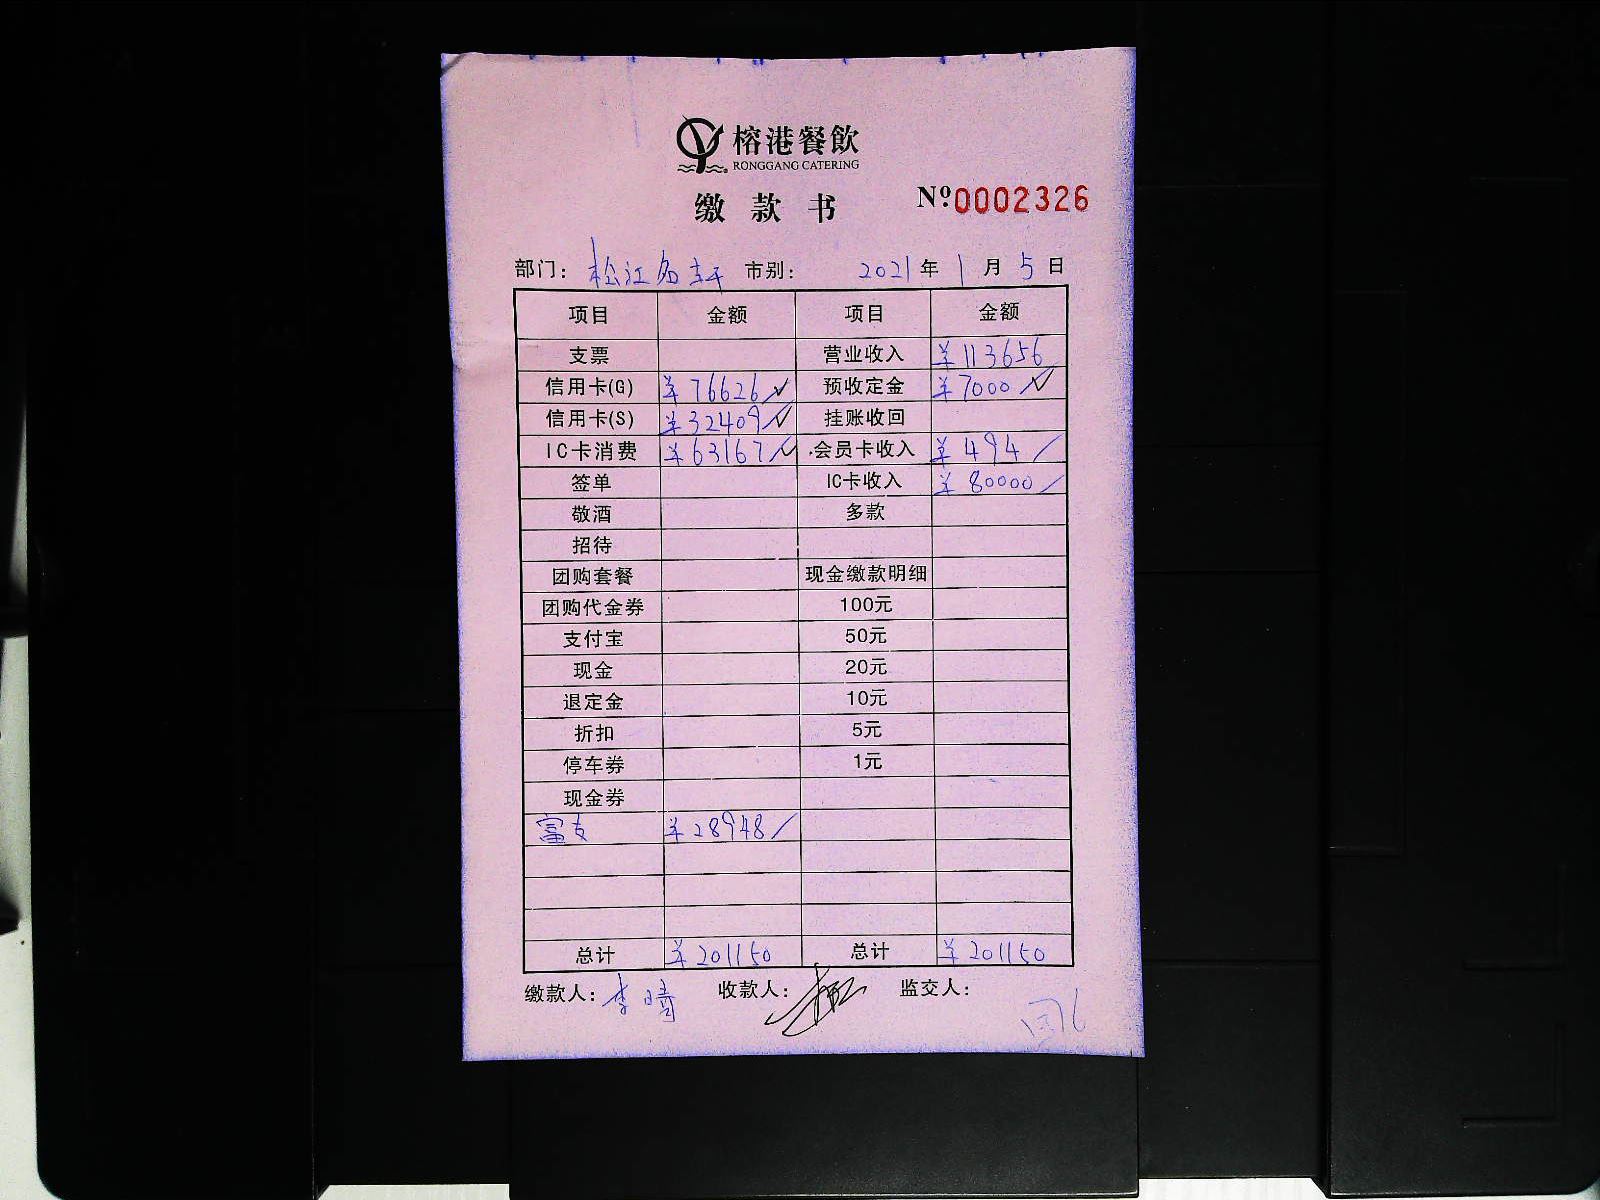 榕港餐飲
RONGGANG CATERING
缴款书 Nº 0002326
部门： 松江名轩 市别： 2021 年 1 月 5 日
项目 金额 项目 金额
支票 营业收入 ¥113656
信用卡(G) ¥76626 预收定金 ¥7000
信用卡(S) ¥32409 挂账收回
IC卡消费 ¥63167 会员卡收入 ¥494
签单 IC卡收入 ¥80000
敬酒 多款
招待
团购套餐 现金缴款明细
团购代金券 100元
支付宝 50元
现金 20元
退定金 10元
折扣 5元
停车券 1元
现金券
富友 ¥28948
总计 ¥201150 总计 ¥201150
缴款人： 李晴 收款人： 监交人：